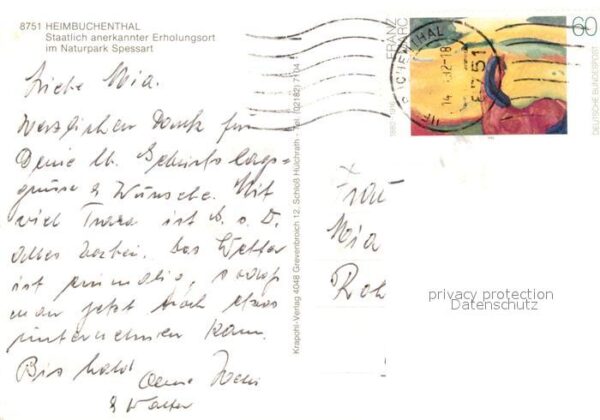 8751 HEIMBUCHENTHAL
Staatlich anerkannter Erholungsort
im Naturpark Spessart
Liebe Mia.
Herzlichen Dank für
Deine lb. Geburtstags-
grüsse & Wünsche. Mit
viel Trara ist
alles vorbei. Das Wetter
ist prima, sodass
man jetzt noch etwas
unternehmen kann.
Bis bald
Deine
& Walter
Krapohl-Verlag 4048 Grevenbroich 12, Schloß Hülchrath - Tel. (02182) 71 54
FRANZ
MARC
60
DEUTSCHE BUNDESPOST
8751
Frau
Mia
Roh
privacy protection
Datenschutz